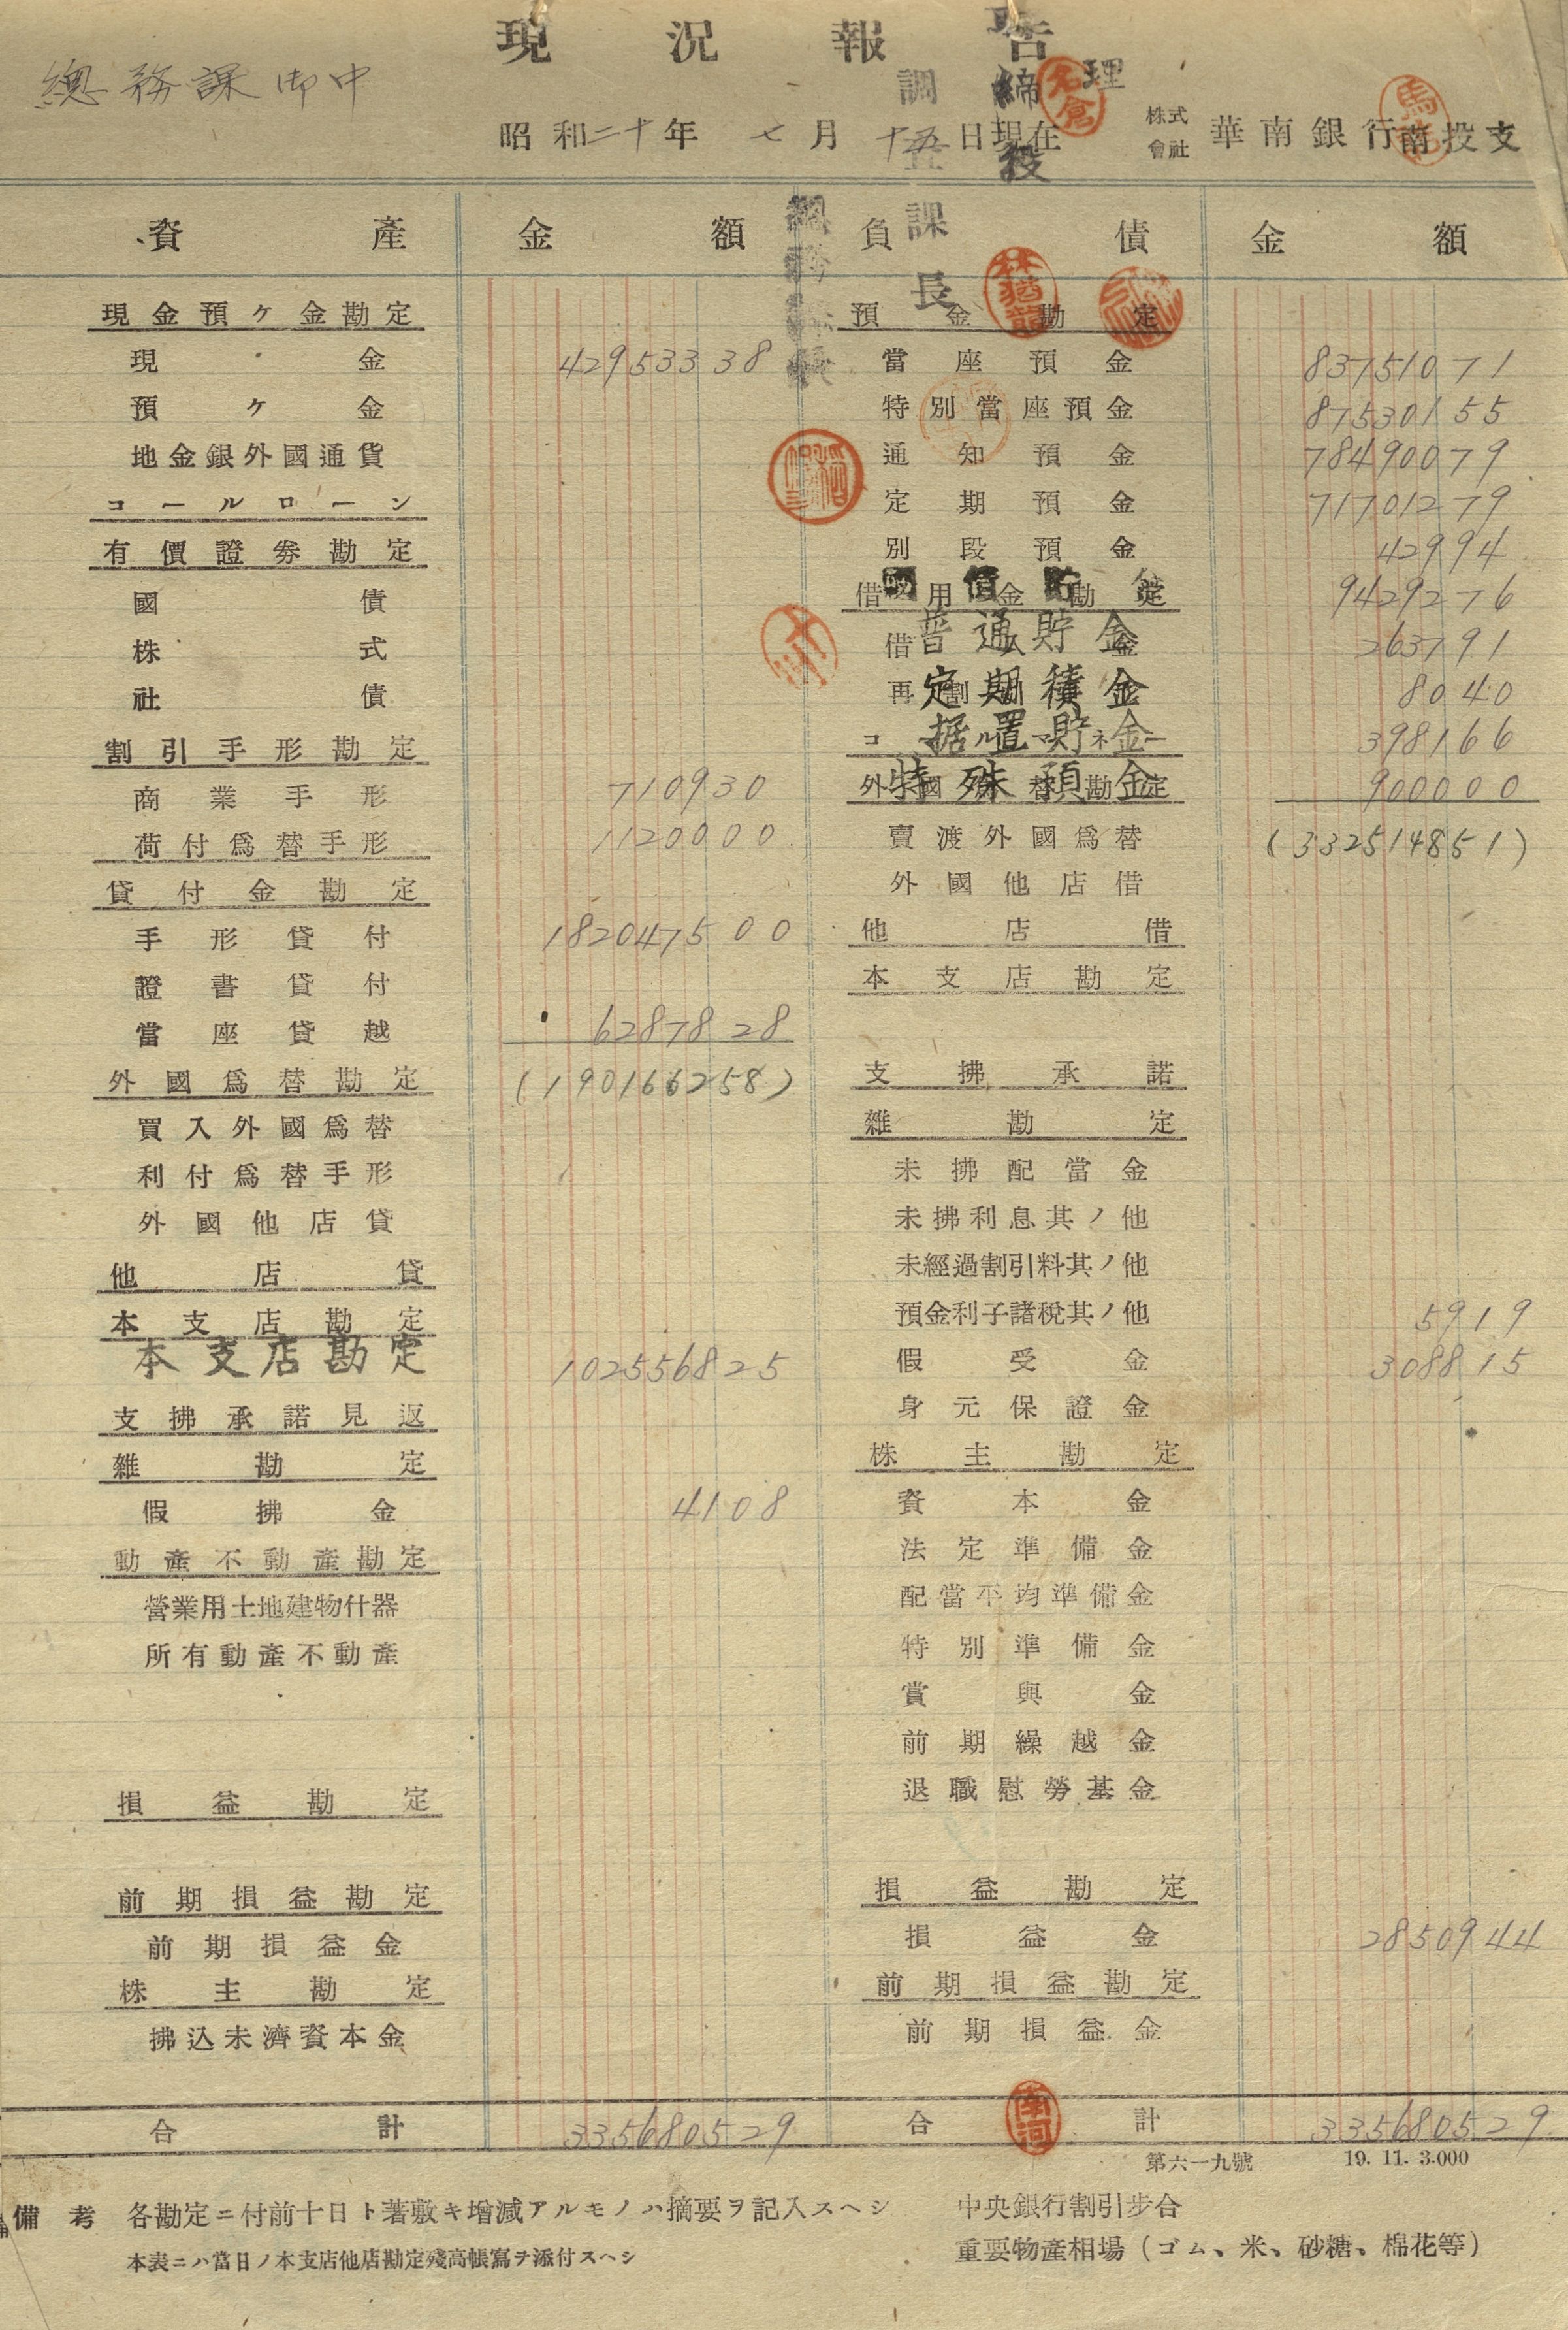 現況報告
總務課御中
昭和二十年七月十五日現在
株式會社 華南銀行南投支
取締役
理
調査課長
總務課長
資產 金額 負債 金額
現金預ケ金勘定 預金勘定
現金 42953338 當座預金 83751071
預ケ金 特別當座預金 87530155
地金銀外國通貨 通知預金 78490079
コールローン 定期預金 71701279
有價證券勘定 別段預金 42994
國債 借用金勘定 9429276
株式 借入金 普通貯金 263791
社債 再割引 定期積金 8040
割引手形勘定 コールマネー 据置貯金 398166
商業手形 710930 外國爲替勘定 特殊預金 900000
荷付爲替手形 1120000 賣渡外國爲替 (332514851)
貸付金勘定 外國他店借
手形貸付 182047500 他店借
證書貸付 本支店勘定
當座貸越 6287828
外國爲替勘定 (190166258) 支拂承諾
買入外國爲替 雜勘定
利付爲替手形 未拂配當金
外國他店貸 未拂利息其ノ他
他店貸 未經過割引料其ノ他
本支店勘定 預金利子諸稅其ノ他 5919
本支店勘定 102556825 假受金 308815
支拂承諾見返 身元保證金
雜勘定 株主勘定
假拂金 4108 資本金
動產不動產勘定 法定準備金
營業用土地建物什器 配當平均準備金
所有動產不動產 特別準備金
賞與金
前期繰越金
損益勘定 退職慰勞基金
前期損益勘定 損益勘定
前期損益金 損益金 2850944
株主勘定 前期損益勘定
拂込未濟資本金 前期損益金
合計 335680529 合計 335680529
第六一九號 19. 11. 3.000
備考 各勘定ニ付前十日ト著敷キ增減アルモノハ摘要ヲ記入スヘシ 中央銀行割引步合
本表ニハ當日ノ本支店他店勘定殘高帳寫ヲ添付スヘシ 重要物產相場(ゴム、米、砂糖、棉花等)